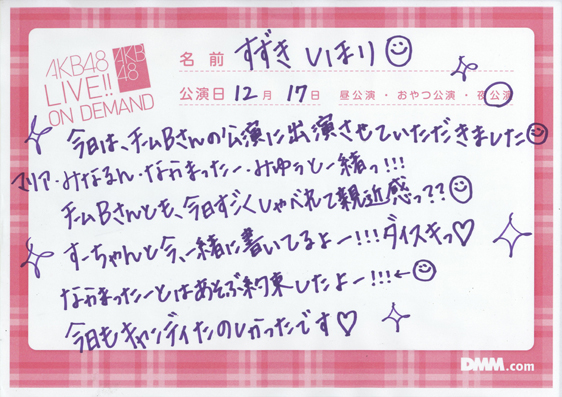 AKB48
LIVE!!
ON DEMAND
AKB
48
名前 すずき いまり
公演日 12月 17日 昼公演・おやつ公演・夜公演
今日は、チムBさんの公演に出演させていただきました
マリア・みなるん・なかまったー・みゆぅと一緒っ!!!
チムBさんとも、今日すごくしゃべれて親近感っ??
すーちゃんと今、一緒に書いてるよー!!!ダイスキっ♡
なかまったーとはあそぶ約束したよー!!!←
今日もキャンディたのしかったです♡
DMM.com